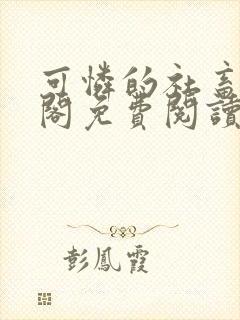 可憐的社畜
閣免費閱讀
彭鳳霞